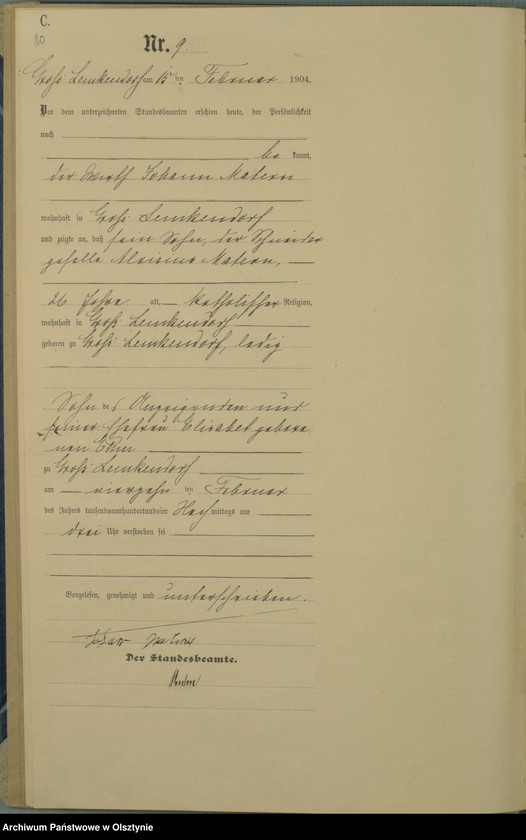 C.
10
Nr. 9
Groß Lemkendorf am 15 ten Februar 1904.
Vor dem unterzeichneten Standesbeamten erschien heute, der Persönlichkeit
nach
be kannt,
der Wirth Johann Matern
wohnhaft in Groß Lemkendorf
und zeigte an, daß sein Sohn, der Schneider
geselle Aloisius Matern,
26 Jahre alt, katholischer Religion,
wohnhaft in Groß Lemkendorf
geboren zu Groß Lemkendorf, ledig
Sohn des Anzeigenden und
seiner Ehefrau Elisabet gebore
nen
zu Groß Lemkendorf
am vierzehn ten Februar
des Jahres tausendneunhundertundvier Nach mittags um
drei Uhr verstorben sei
Vorgelesen, genehmigt und unterschrieben.
Der Standesbeamte.
Archiwum Państwowe w Olsztynie